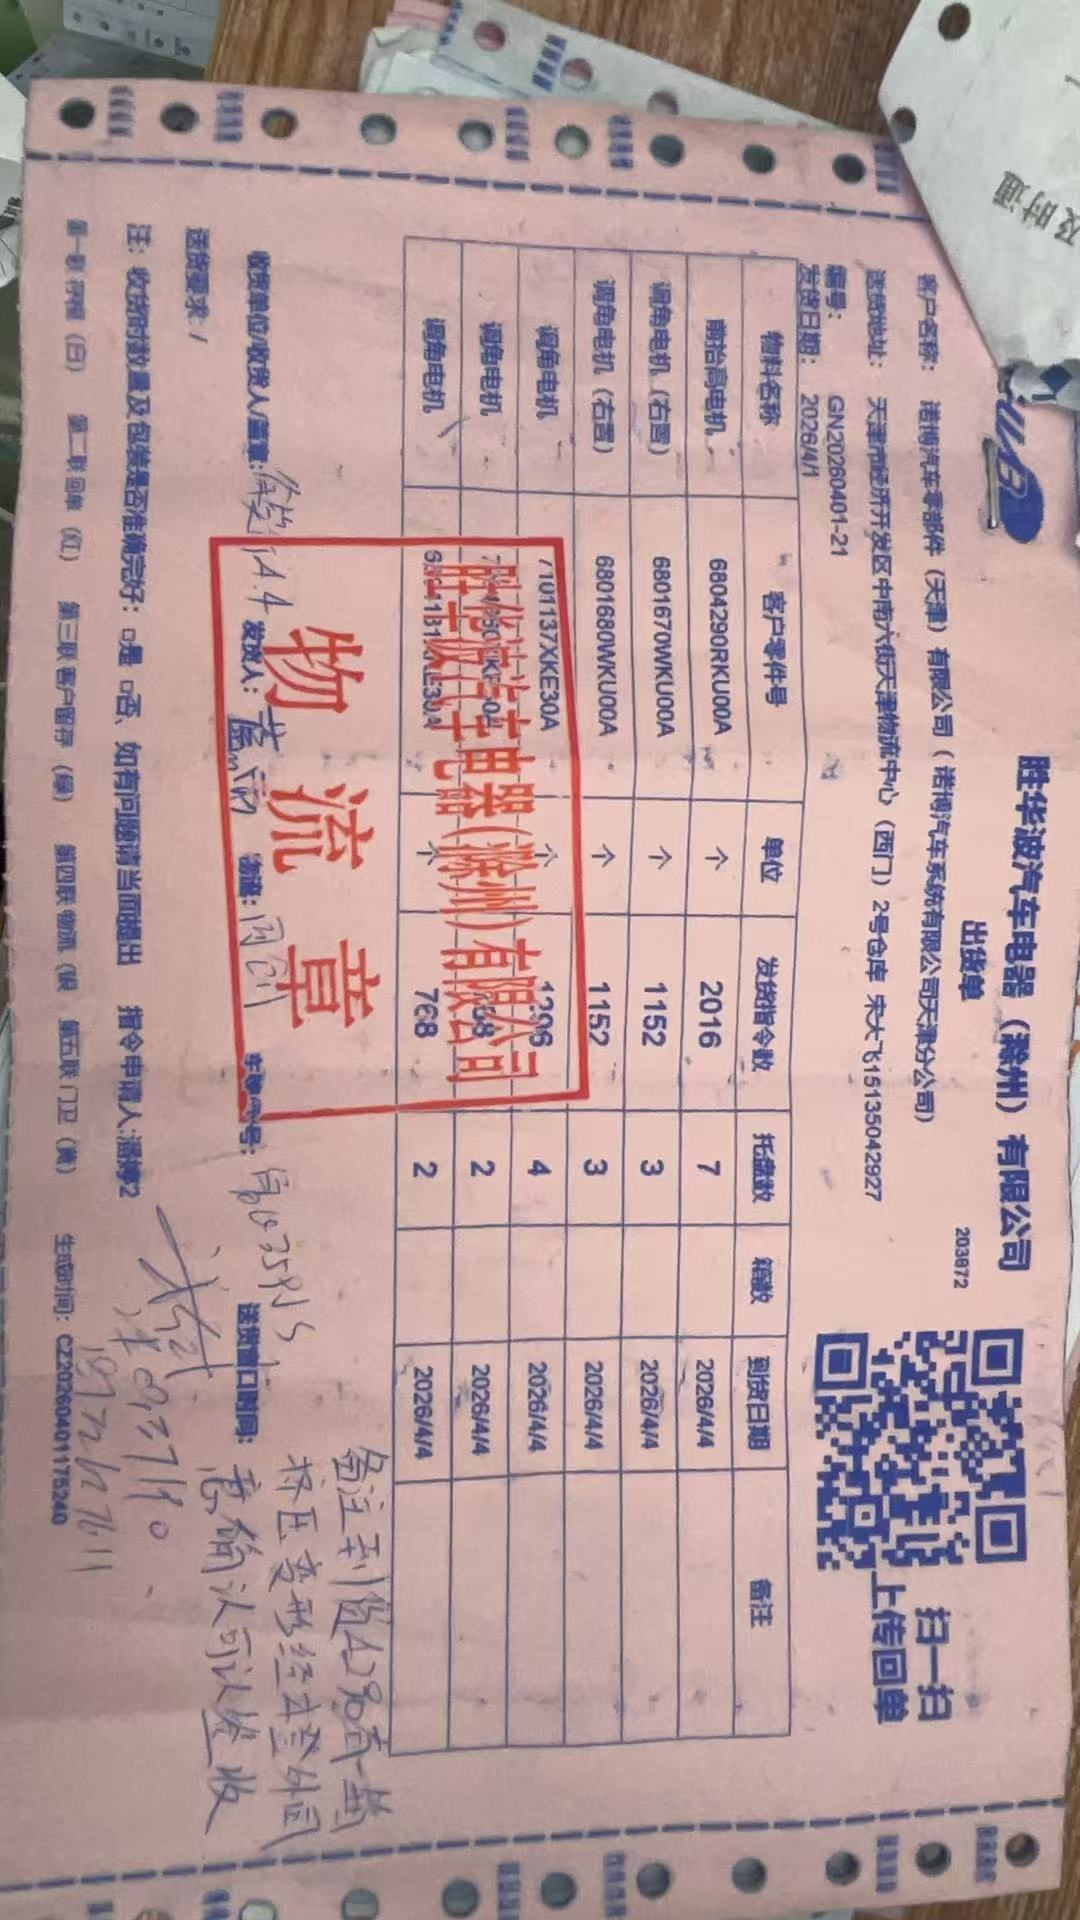 胜华波汽车电器（滁州）有限公司
出货单
203672
扫一扫
上传回单
客户名称： 诺博汽车零部件（天津）有限公司（诺博汽车系统有限公司天津分公司）
送货地址： 天津市经济开发区中南六街天津物流中心（西门）2号仓库 宋大飞15135042927
编号： GN20260401-21
发货日期： 2026/4/1
物料名称 客户零件号 单位 发货指令数 托盘数 箱数 到货日期 备注
前抬高电机 6804290RKU00A 个 2016 7 2026/4/4
调角电机（右置） 6801670WKU00A 个 1152 3 2026/4/4
调角电机（右置） 6801680WKU00A 个 1152 3 2026/4/4
调角电机 7101137XKE30A 个 4 2026/4/4
调角电机 2 2026/4/4
调角电机 个 768 2 2026/4/4
胜华波汽车电器(滁州)有限公司
物流章
收货单位/收货人/盖章: 4.4 发货人: 物流: 车牌号: 送货窗口时间:
送货要求: /
备注到货A2 有一些
挤压变形经
意 认可以签收
注: 收货时数量及包装是否准确完好: □是 □否、如有问题请当面提出 指令申请人:潘婷2
第一联 存根（白） 第二联 回单（红） 第三联 客户留存（绿） 第四联 物流（ 第五联 门卫（黄） 生成时间: CZ20260401175240
及时通